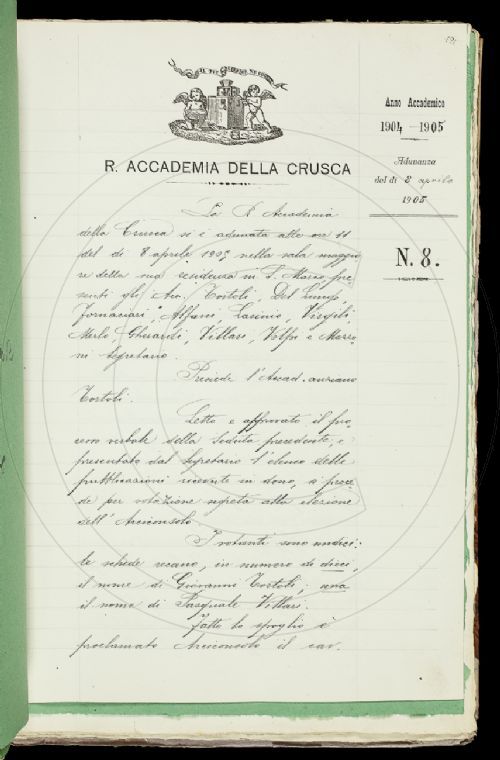 R. ACCADEMIA DELLA CRUSCA
Anno Accademico
1904-1905
Adunanza
del dì 8 aprile
1905
N. 8.
La R. Accademia
della Crusca si è adunata alle ore 11
del dì 8 aprile 1905 nella sala maggio
re della sua residenza in S. Marco, pre
senti gli Acc. Tortoli, Del Lungo,
Fornaciari, Alfani, Lasinio, Virgili
Merlo, Gherardi, Villari, Volpi e Mazzo
ni Segretario.
Presiede l'Accad. anziano
Tortoli.
Letto e approvato il pro
cesso verbale della seduta precedente, e
presentato dal Segretario l'elenco delle
pubblicazioni ricevute in dono, si proce
de per votazione segreta alla elezione
dell'Arciconsolo.
I votanti sono undici:
le schede recano, in numero di dieci,
il nome di Giovanni Tortoli; una
il nome di Pasquale Villari.
Fatto lo spoglio è
proclamato Arciconsolo il cav.